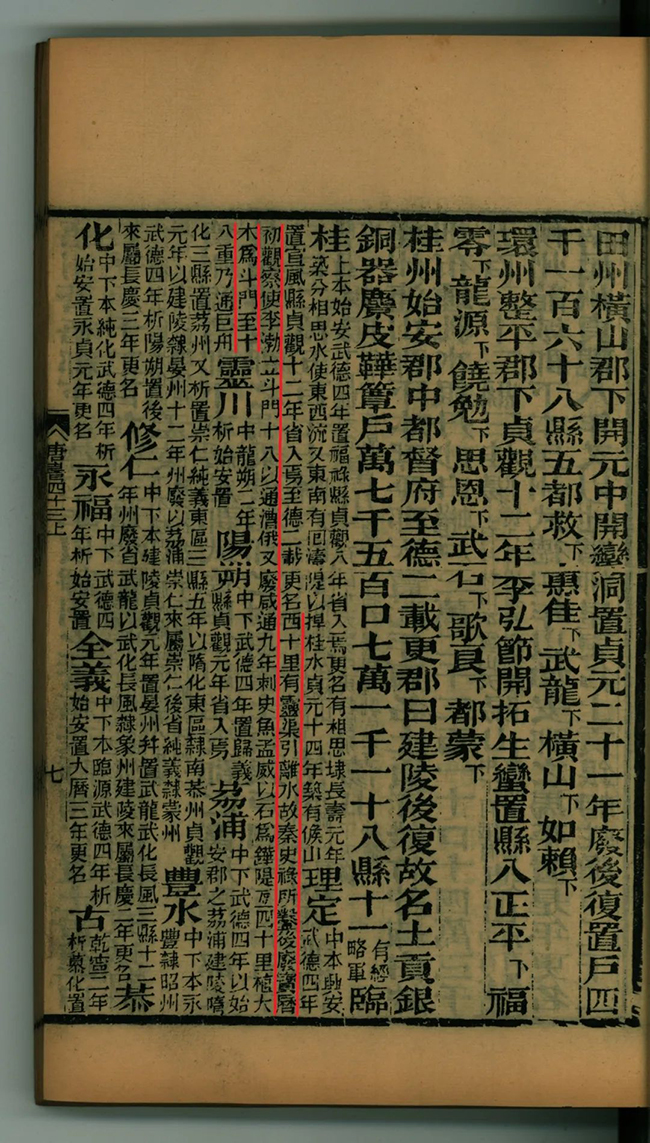 田州橫山郡下開元中開蠻洞置貞元二十一年廢後復置戶四
千一百六十八縣五都救下惠佳下武龍下橫山下如賴下
環州整平郡下貞觀十二年李弘節開拓生蠻置縣八正平下福
零下龍源下饒勉下思恩下武石下歌良下都蒙下
桂州始安郡中都督府至德二載更郡曰建陵後復故名土貢銀
銅器麖皮鞾簟戶萬七千五百口七萬一千一十八縣十一有經略軍臨
桂上本始安武德四年置福祿縣貞觀八年省入焉更名有相思埭長壽元年築分相思水使東西流又東南有回濤隄以捍桂水貞元十四年築有侯山理定中本興安武德四年
置宣風縣貞觀十二年省入焉至德二載更名西十里有靈渠引灕水故秦史祿所鑿後廢寶曆
初觀察使李渤立斗門十八以通漕俄又廢咸通九年刺史魚孟威以石爲鏵隄亘四十里植大
木爲斗門至十八重乃通巨舟靈川中龍朔二年析始安置陽朔中下武德四年置歸義縣貞觀元年省入焉荔浦中下武德四年以始安郡之荔浦建陵隋
化三縣置荔州又析置崇仁純義東區三縣五年以隋化東區隸南恭州貞觀元年以建陵隸晏州十二年州廢以荔浦崇仁來屬崇仁後省純義隸蒙州豐水中下本永豐隸昭州
武德四年析陽朔置後來屬長慶三年更名修仁中下本建陵貞觀元年置晏州幷置武龍武化長風三縣十二年州廢省武龍以武化長風隸象州建陵來屬長慶二年更名恭
化中下本純化武德四年析始安置永貞元年更名永福中下武德四年析始安置全義中下本臨源武德四年析始安置大曆三年更名古乾寧二年析慕化置
唐書四十三上
七